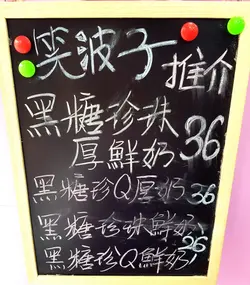 笑波子
推介
黑糖珍珠
厚鮮奶 36
黑糖珍Q厚奶 36
黑糖珍珠鮮奶
36
黑糖珍Q鮮奶